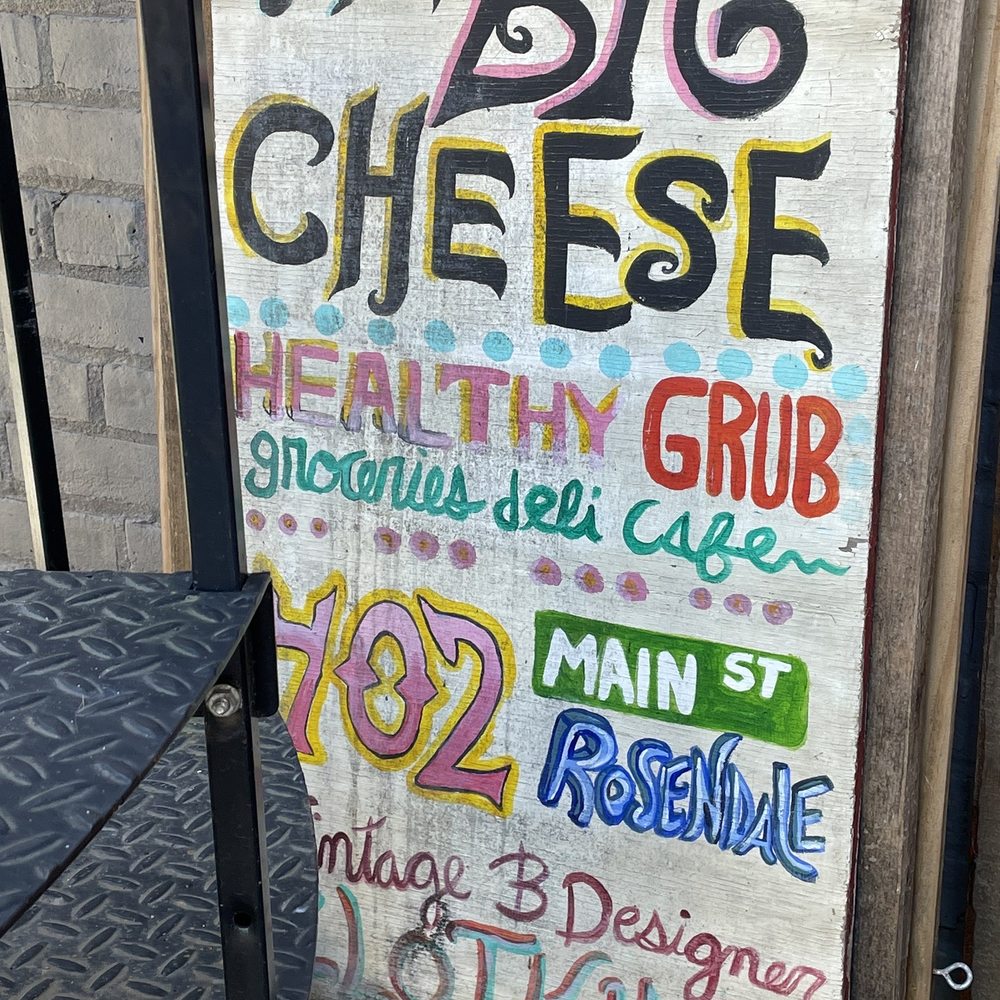 BIG
CHEESE
HEALTHY GRUB
groceries deli Cafe
402 MAIN ST
ROSENDALE
intage & Designer